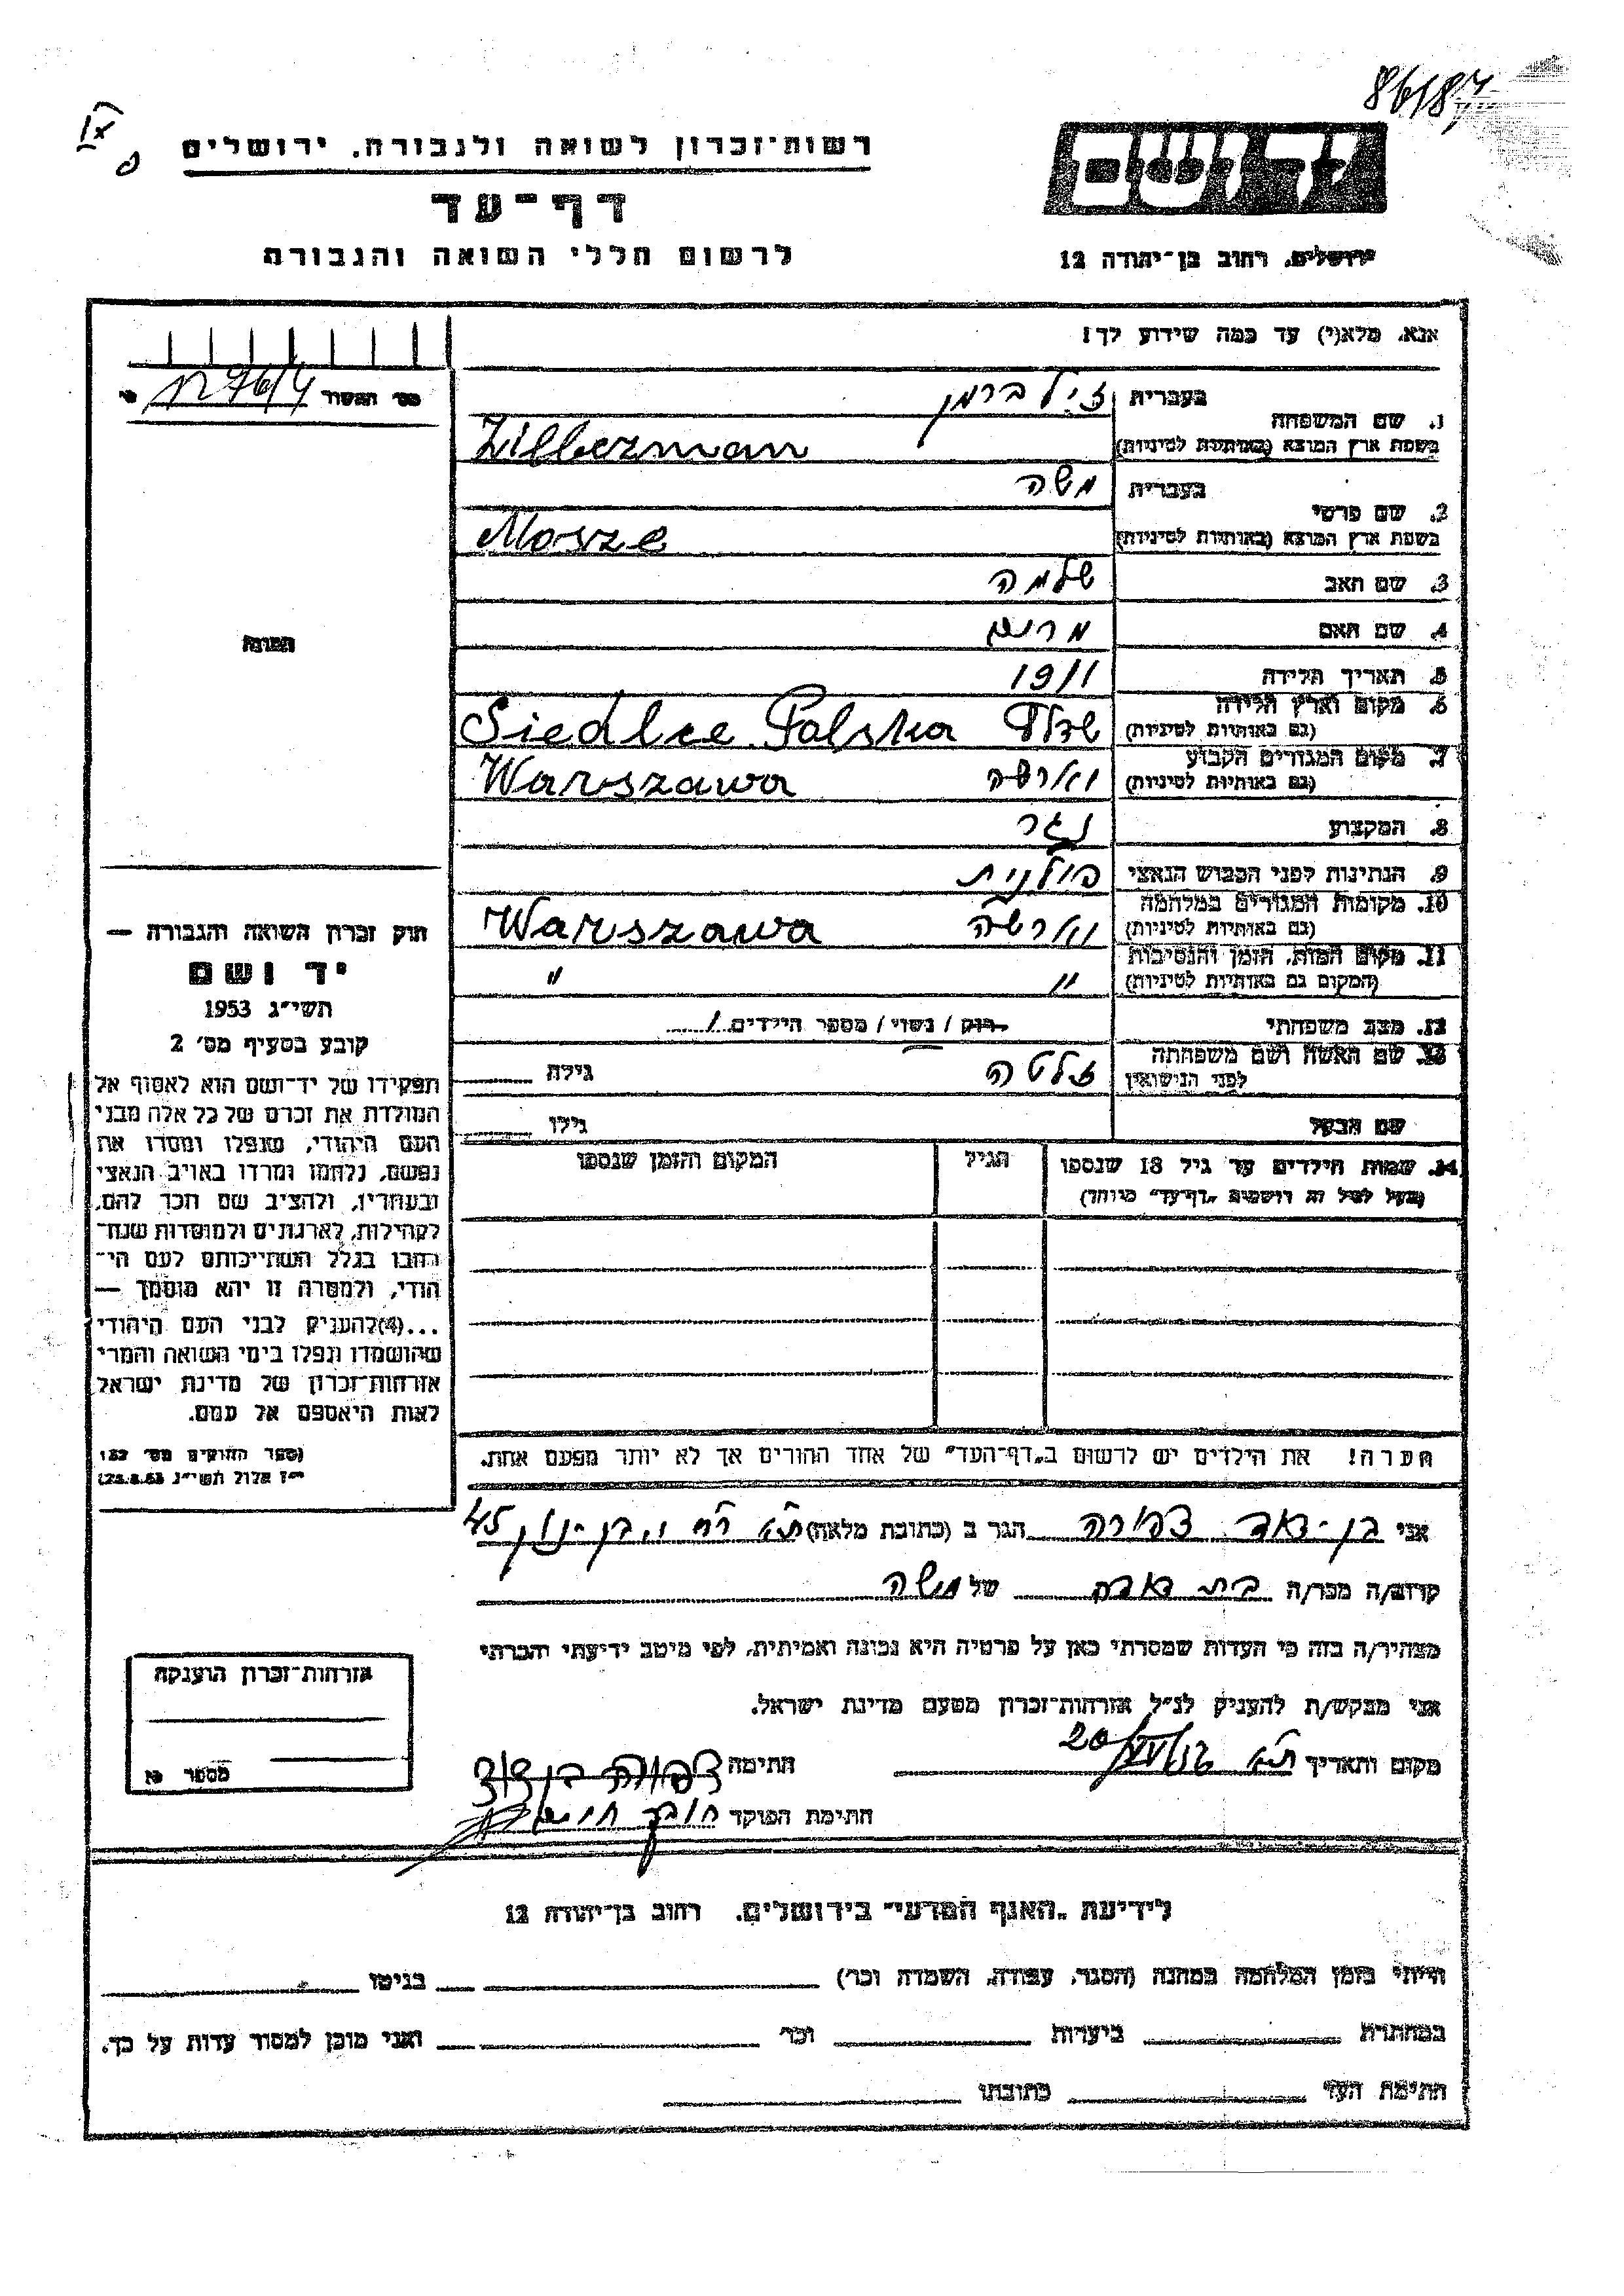 86/87
רשות־זכרון לשואה ולגבורה, ירושלים
דף־עד
לרשום חללי השואה והגבורה
יד ושם
ירושלים, רחוב בן־יהודה 12
אנא, מלא(י) עד כמה שידוע לך!
1. שם המשפחה
בעברית זילברמן
בשפת ארץ המוצא (באותיות לטיניות) Zilberman
2. שם פרטי
בעברית משה
בשפת ארץ המוצא (באותיות לטיניות) Mosze
3. שם האב שלמה
4. שם האם מרים
5. תאריך הלידה 1911
6. מקום וארץ הלידה
(גם באותיות לטיניות) שדלץ Siedlce Polska
7. מקום המגורים הקבוע
(גם באותיות לטיניות) ווארשה Warszawa
8. המקצוע נגר
9. הנתינות לפני הכבוש הנאצי פולנית
10. מקומות המגורים במלחמה
(גם באותיות לטיניות) ווארשה Warszawa
11. מקום המות, הזמן והנסיבות
(המקום גם באותיות לטיניות) " "
12. מצב משפחתי רווק / נשוי / מספר הילדים 1
13. שם האשה ושם משפחתה
לפני הנישואין זלטה גילה
שם הבעל גילו
14. שמות הילדים עד גיל 18 שנספו הגיל המקום והזמן שנספו
(מעל לגיל זה רושמים "דף־עד" מיוחד)
הערה! את הילדים יש לרשום ב"דף־העד" של אחד ההורים אך לא יותר מפעם אחת.
מס' האשור
התמונה
חוק זכרון השואה והגבורה —
יד ושם
תשי"ג 1953
קובע בסעיף מס' 2
תפקידו של יד־ושם הוא לאסוף אל
המולדת את זכרם של כל אלה מבני
העם היהודי, שנפלו ומסרו את
נפשם, נלחמו ומרדו באויב הנאצי
ובעוזריו, ולהציב שם וזכר להם,
לקהילות, לארגונים ולמוסדות שנח־
רבו בגלל השתייכותם לעם הי־
הודי, ולמטרה זו יהא מוסמך —
...(4) להעניק לבני העם היהודי
שהושמדו ונפלו בימי השואה והמרי
אזרחות־זכרון של מדינת ישראל
לאות היאספם אל עמם.
(ספר החוקים מס' 132
י"ז אלול תשי"ג 28.8.53)
אני בן־דוד צפורה הגר ב (כתובת מלאה) ת"א רח' י. בן־נון 45
קרוב/ה מכר/ה בת דודה של משה
מצהיר/ה בזה כי העדות שמסרתי כאן על פרטיה היא נכונה ואמיתית, לפי מיטב ידיעתי והכרתי
אני מבקש/ת להעניק לנ"ל אזרחות־זכרון מטעם מדינת ישראל.
מקום ותאריך ת"א
חתימה צפורה בן דוד
חתימת הפוקד
אזרחות־זכרון הוענקה
מספר
לידיעת "האגף המדעי" בירושלים, רחוב בן־יהודה 12
הייתי בזמן המלחמה במחנה (הסגר, עבודה, השמדה וכו') בגיטו
במחתרת ביערות וכו' ואני מוכן למסור עדות על כך.
חתימת העד כתובתו